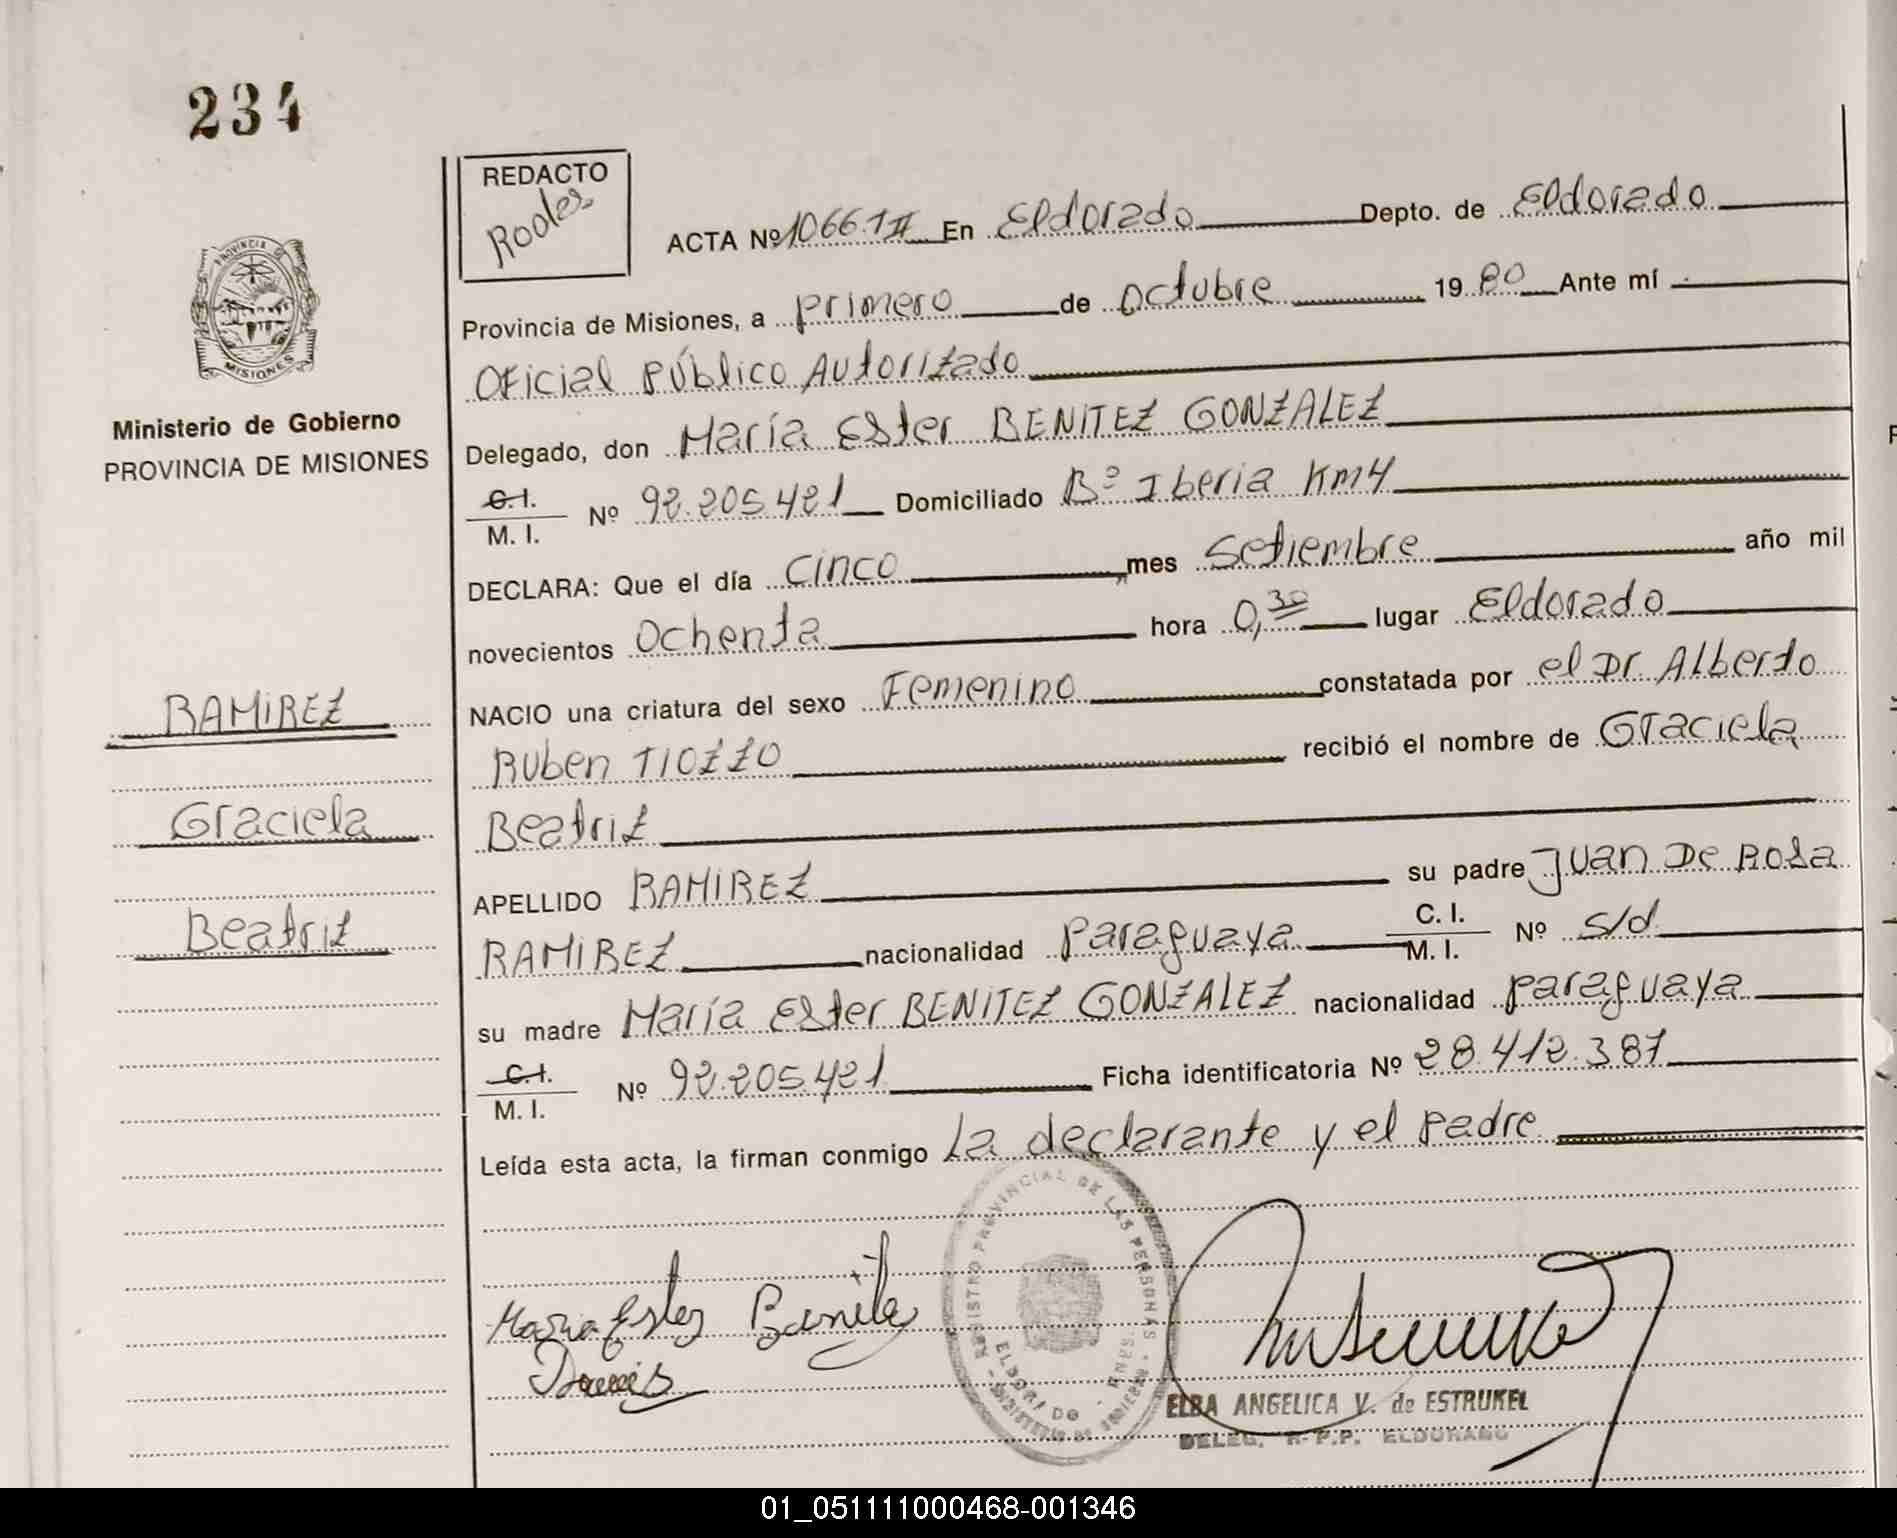 234
REDACTO
ACTA Nº 1066.TII En Eldorado Depto. de Eldorado
Provincia de Misiones, a primero de octubre 1980 Ante mí
Oficial Público Autorizado
PROVINCIA DE
MISIONES
Ministerio de Gobierno
PROVINCIA DE MISIONES
Delegado, don María Ester BENITEZ GONZALEZ
C.I.
M. I. Nº 92.205.421 Domiciliado Bº Iberia Km4
DECLARA: Que el día cinco mes Setiembre año mil
novecientos ochenta hora 0,30 lugar Eldorado
NACIO una criatura del sexo Femenino constatada por el Dr. Alberto
Ruben TIOZZO recibió el nombre de Graciela
Beatriz
RAMIREZ
Graciela
Beatriz
APELLIDO RAMIREZ su padre Juan De Rosa
RAMIREZ nacionalidad paraguaya C. I.
M. I. Nº s/d
su madre María Ester BENITEZ GONZALEZ nacionalidad paraguaya
C.I.
M. I. Nº 92.205.421 Ficha identificatoria Nº 28.412.387
Leída esta acta, la firman conmigo La declarante y el padre
REGISTRO PROVINCIAL DE LAS PERSONAS
ELDORADO
Maria Ester Benitez
ELBA ANGELICA V. de ESTRUKEL
DELEG. R. P.P. ELDORADO
01_051111000468-001346